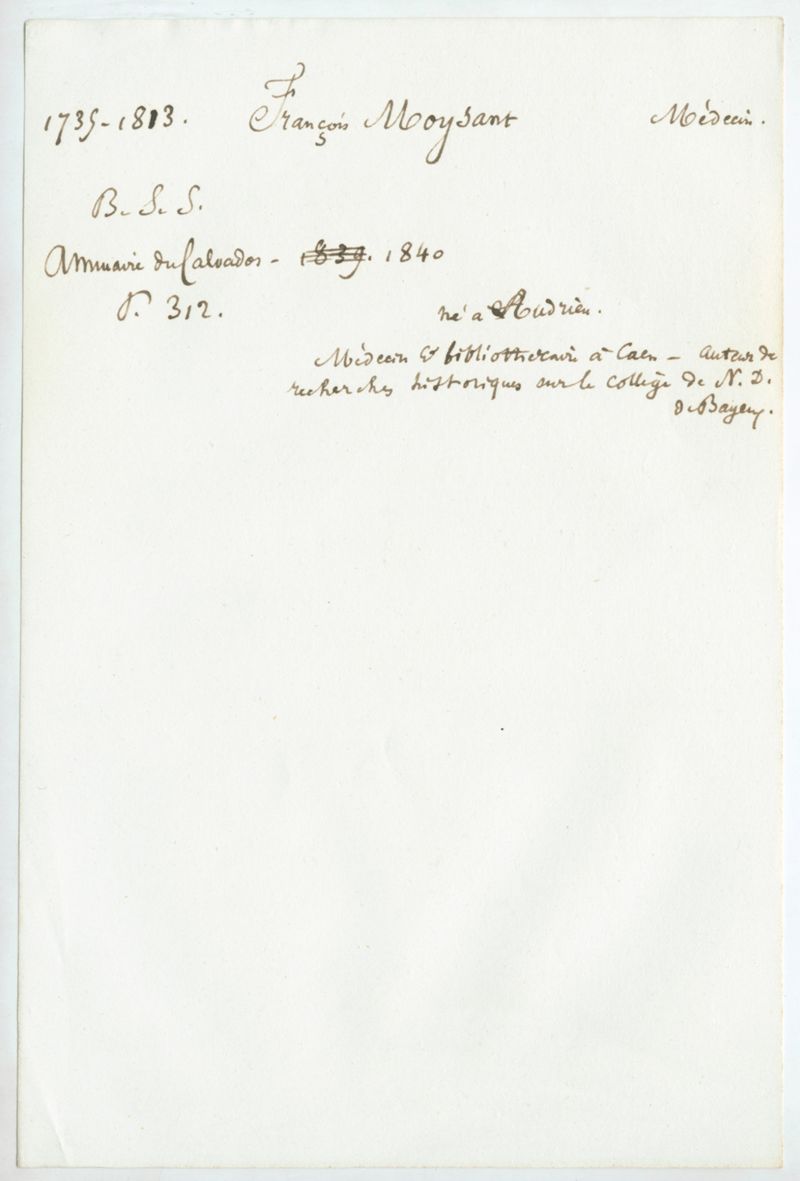 1735-1813. François Moysant Médecin.
B. S. S.
Annuaire du Calvados - 1839. 1840
P. 312. né à Audrieu.
Médecin & bibliothécaire à Caen - auteur de
recherches historiques sur le collège de N. D.
de Bayeux.